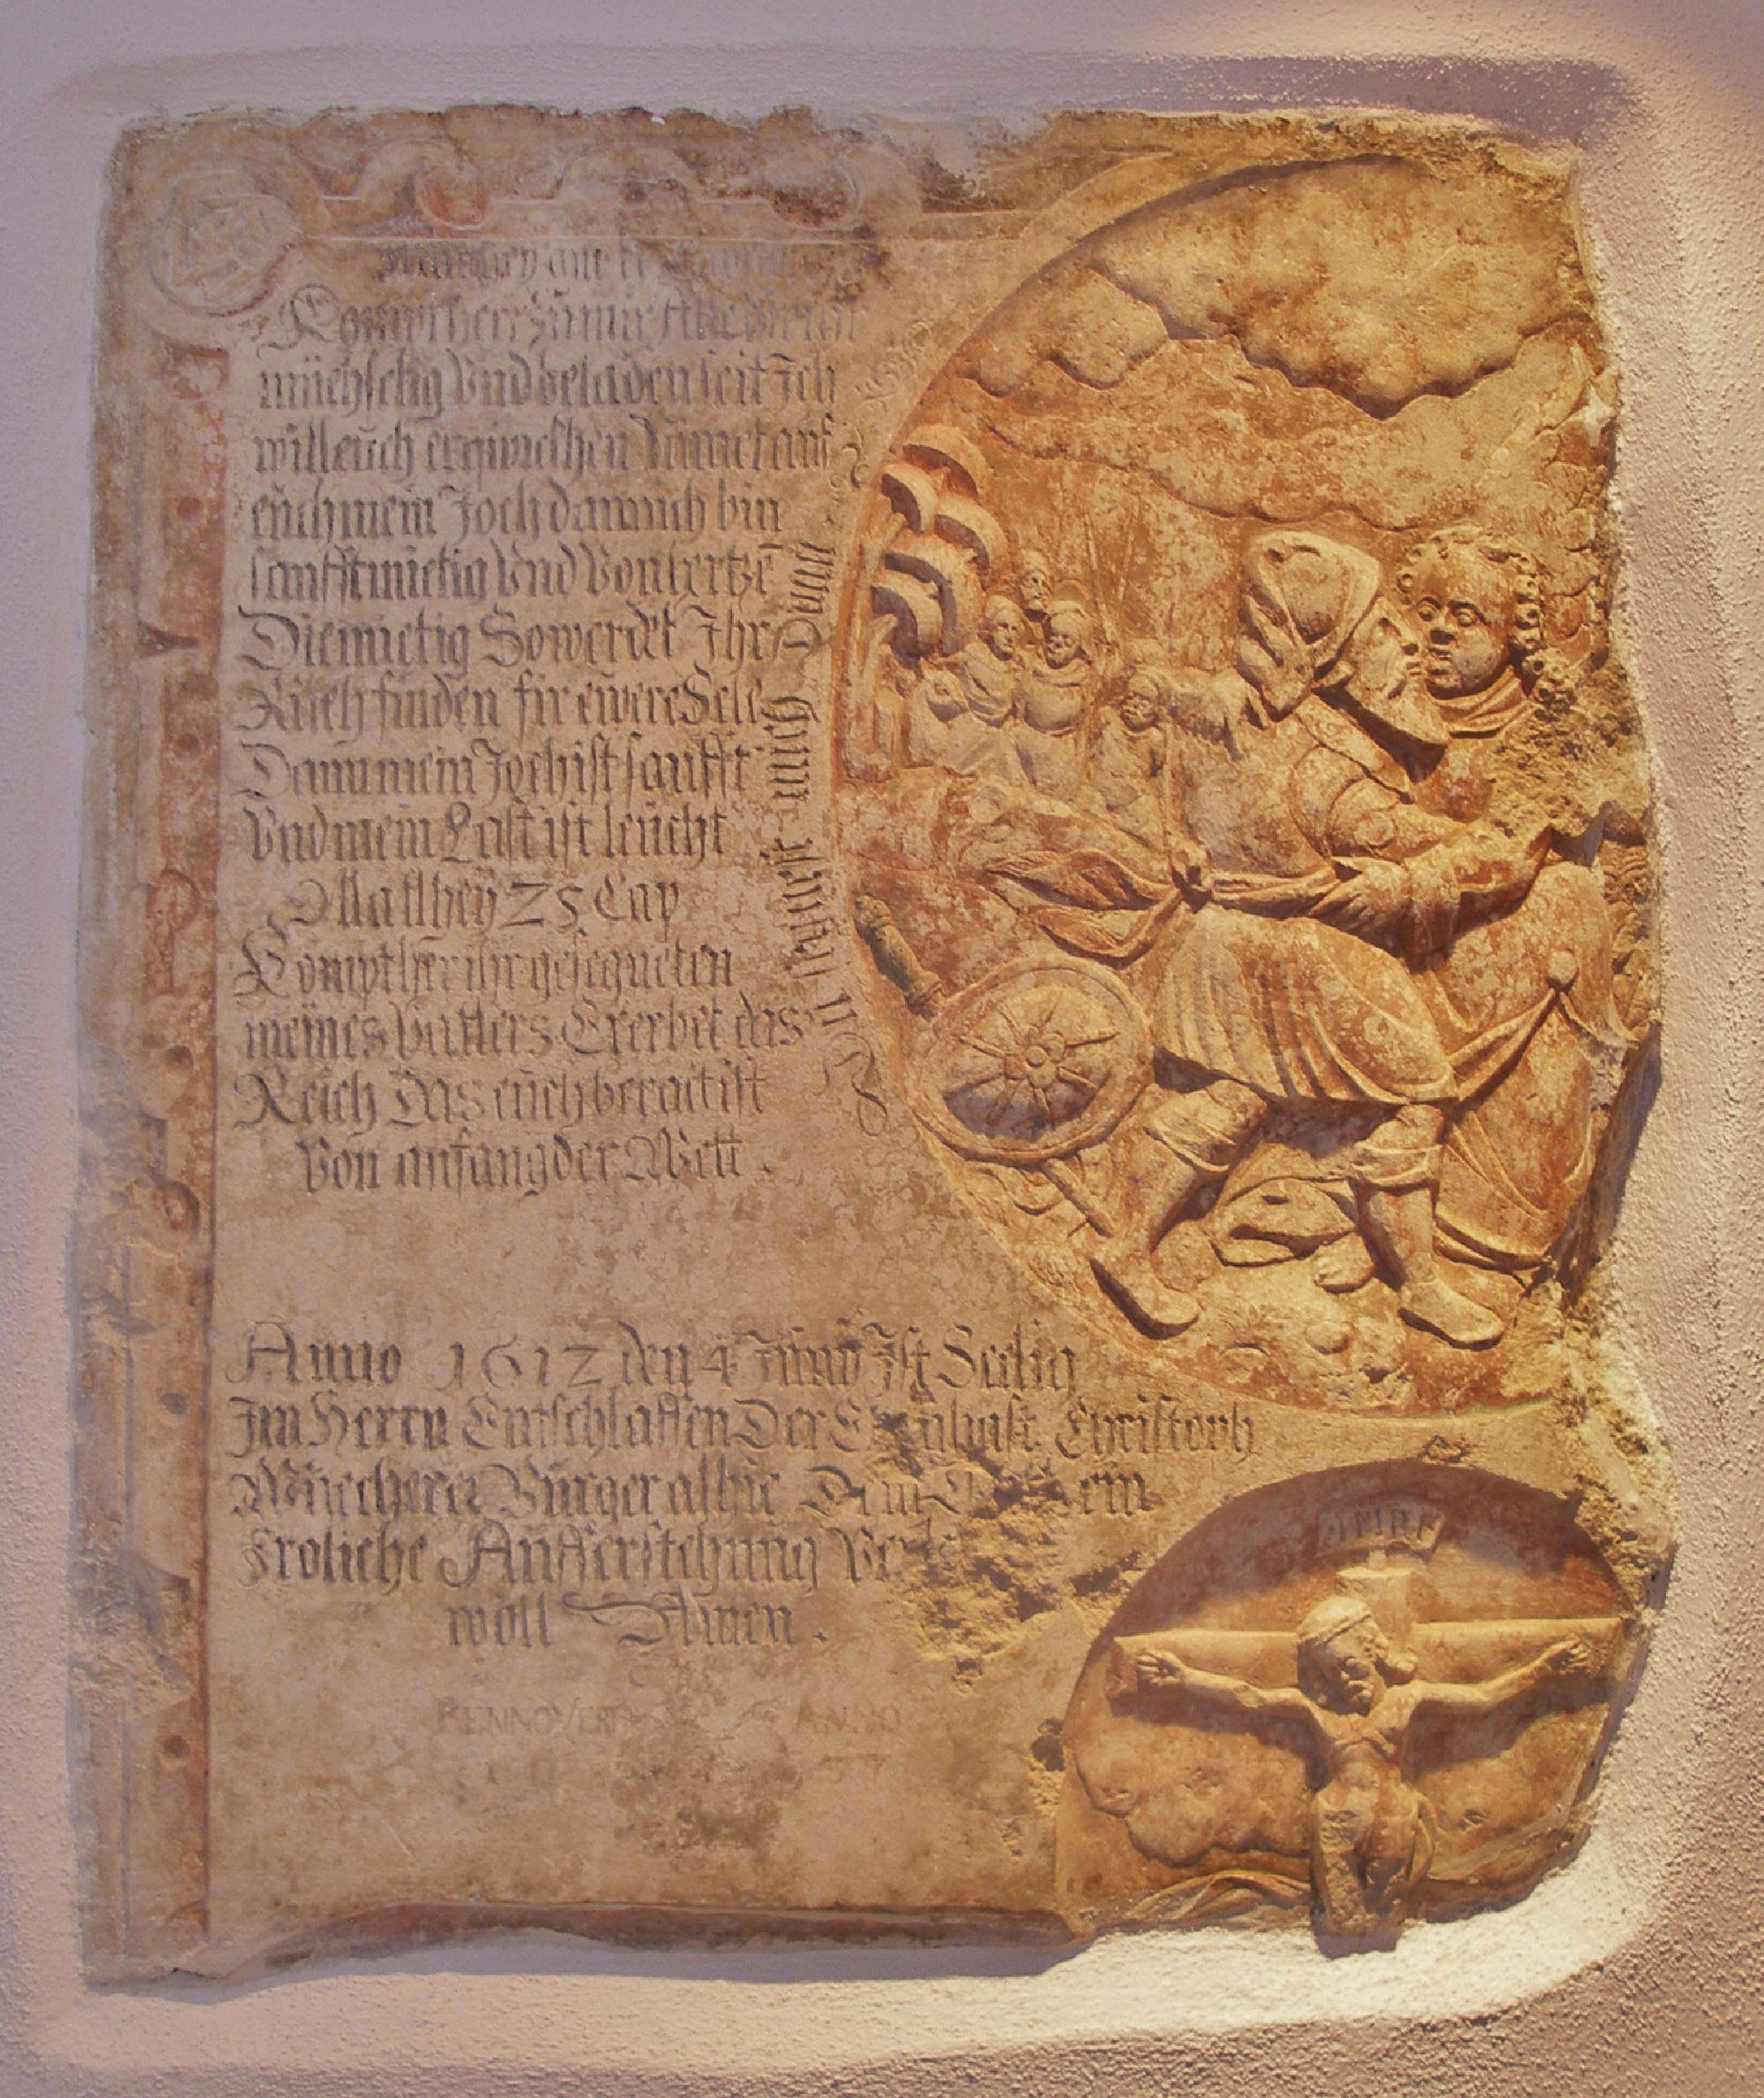 Matthey am 11 Cap
Kompt herr zu mir Alle die ir
müehselig Vnd beladen seit Ich
will euch erquickhen Nemet auf
euch mein Joch dann ich bin
sanfftmietig Vnd Von hertzē
Diemietig So werdet Ihr
Rueh finden fir ewere Sele
Dann mein Joch ist sanfft
Vnd mein Last ist leücht
Matthey 25 Cap
Kompt her ihr gesegneten
meines Vatters Ererbet das
Reich Das eüch beraitist
Von anfang der Welt .
segnest mich Dann
Anno 1612 den 4 Junij Ist Seelig
Im Herrn Entschlaffen Der Christoph
Bürger alhie Dem ein
Froliche Aufferstehung
wöll Amen .
RENNOVERT ANNO
INRI